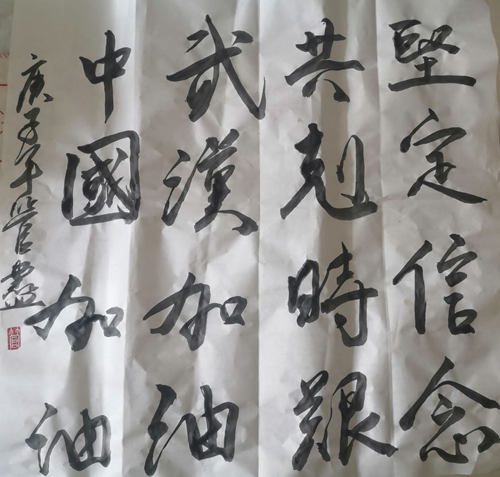 堅定信念
共剋時艱
武漢加油
中國加油
庚子年管